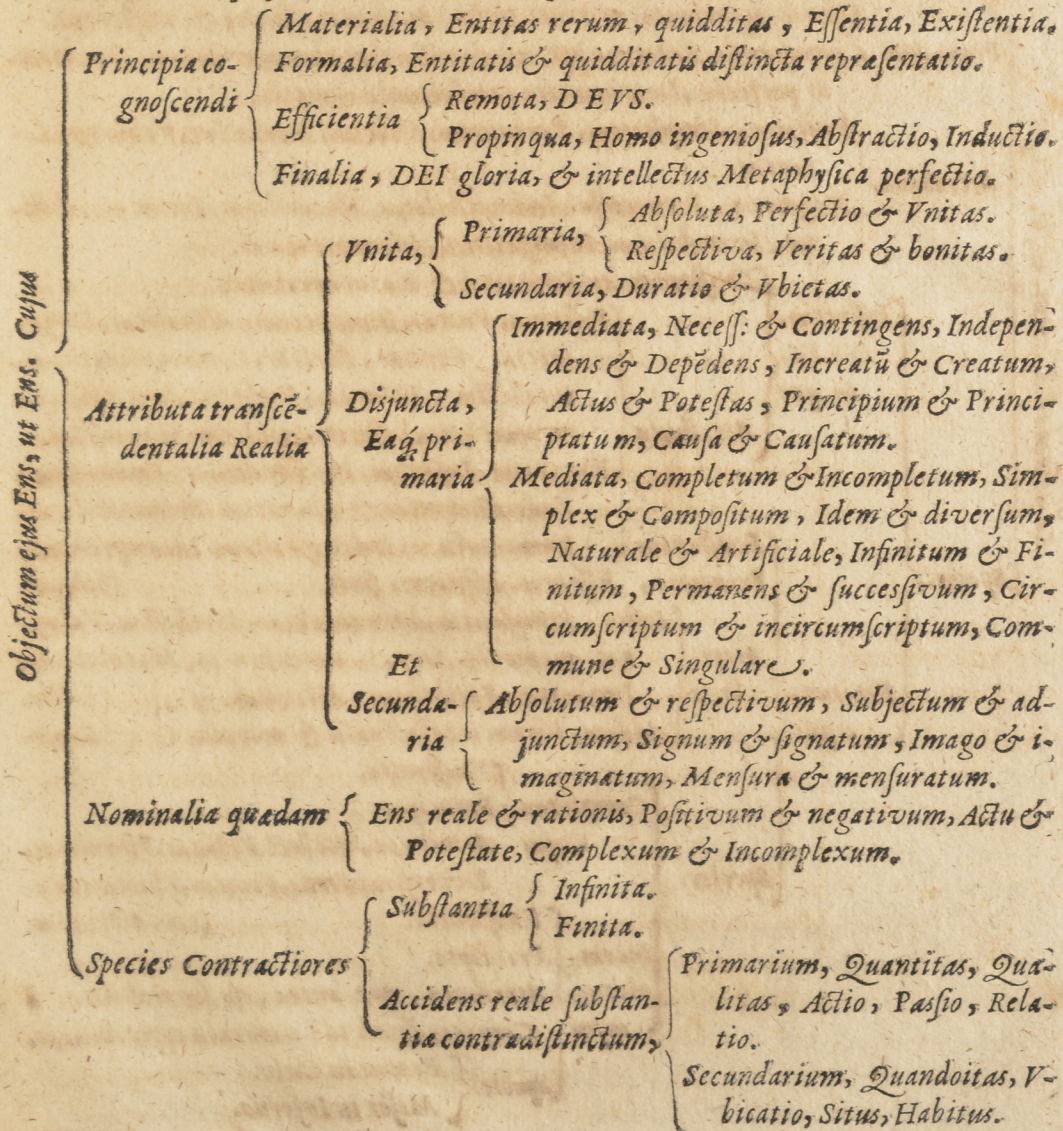 Objectum ejus Ens, ut Ens. Cujus
Principia co-
gnoſcendi
Materialia, Entitas rerum, quidditas, Eſſentia, Exiſtentia.
Formalia, Entitatis & quidditatis diſtincta repræſentatio.
Efficientia
Remota, DEVS.
Propinqua, Homo ingenioſus, Abſtractio, Inductio.
Finalia, DEI gloria, & intellectus Metaphyſica perfectio.
Attributa tranſcē-
dentalia Realia
Vnita,
Primaria,
Abſoluta, Perfectio & Vnitas.
Reſpectiva, Veritas & bonitas.
Secundaria, Duratio & Vbietas.
Disjuncta,
Eaq́; pri-
maria
Immediata, Neceſſ: & Contingens, Indepen-
dens & Depēdens, Increatū & Creatum,
Actus & Poteſtas, Principium & Princi-
piatum, Cauſa & Cauſatum.
Mediata, Completum & Incompletum, Sim-
plex & Compoſitum, Idem & diverſum,
Naturale & Artificiale, Infinitum & Fi-
nitum, Permanens & ſucceſſivum, Cir-
cumſcriptum & incircumſcriptum, Com-
mune & Singulare.
Et
Secunda-
ria
Abſolutum & reſpectivum, Subjectum & ad-
junctum, Signum & ſignatum, Imago & i-
maginatum, Menſura & menſuratum.
Nominalia quædam
Ens reale & rationis, Poſitivum & negativum, Actu &
Poteſtate, Complexum & Incomplexum.
Species Contractiores
Subſtantia
Infinita.
Finita.
Accidens reale ſubſtan-
tiæ contradiſtinctum,
Primarium, Quantitas, Qua-
litas, Actio, Paſſio, Rela-
tio.
Secundarium, Quandoitas, V-
bicatio, Situs, Habitus.